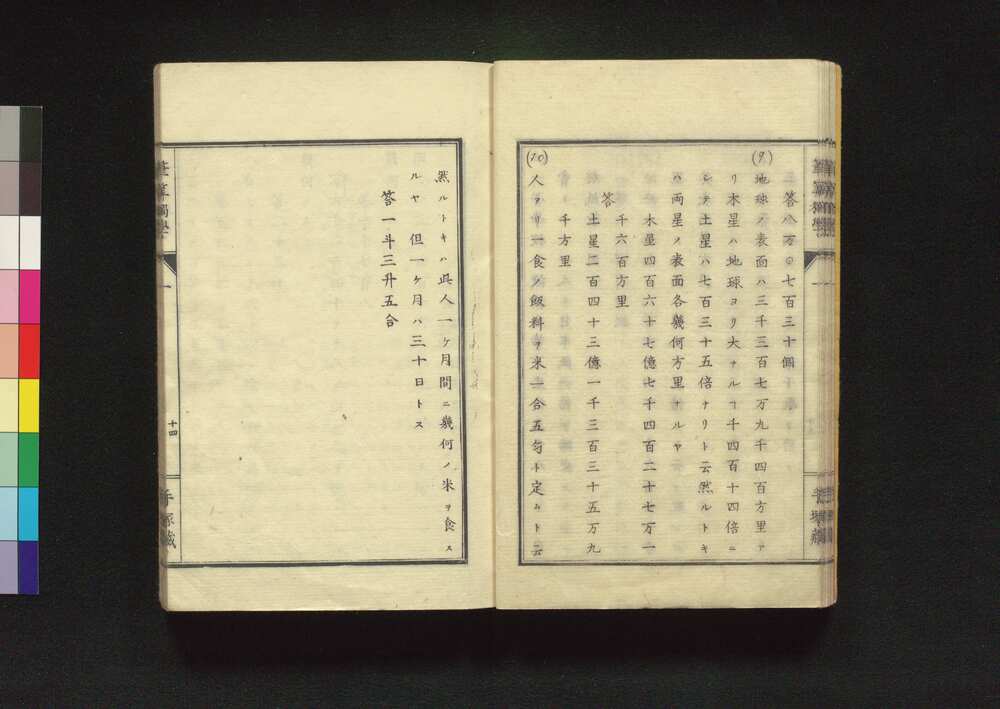 筆算獨學
一
答八万〇七百三十個
(9.)
地球ノ表面ハ三千三百七万九千四百方里ア
リ木星ハ地球ヨリ大ナルヿ千四百十四倍ニ
シテ土星ハ七百三十五倍ナリト云然ルトキ
ハ両星ノ表面各幾何方里ナルヤ
木星四百六十七億七千四百二十七万一
千六百方里
答
土星二百四十三億一千三百三十五万九
千方里
(10)
人アリ一食ノ飯料ヲ米一合五勺ト定ムト云
然ルトキハ其人一ケ月間ニ幾何ノ米ヲ食ス
ルヤ 但一ケ月ハ三十日トス
答一斗三升五合
筆算獨學
一
十四
手塚蔵